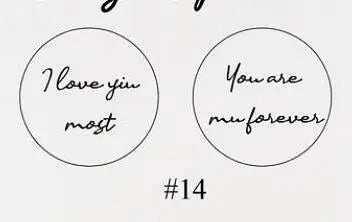 I love yiu
most
You are
mu forever
#14